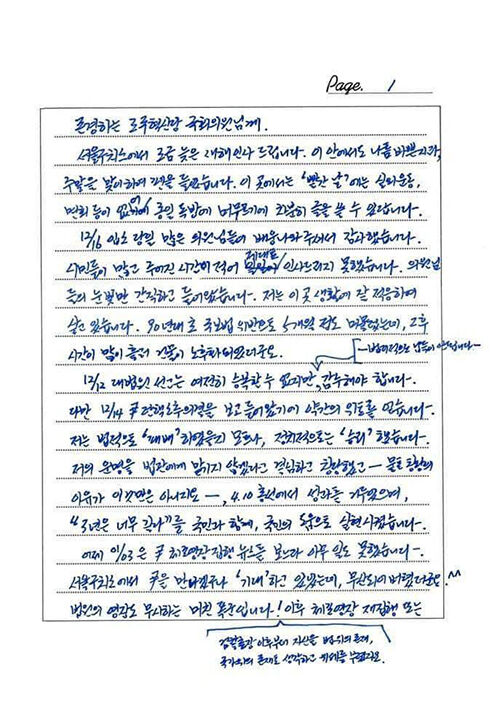 Page. 1
존경하는 조국혁신당 국회의원님께.
서울구치소에서 조금 늦은 새해인사 드립니다. 이 안에서도 나름 바쁜지라,
주말을 맞이하여 펜을 들었습니다. 이 곳에서는 '빨간 날'에는 실외운동,
면회 등이 없이 종일 독방에 머무르기에 차분히 글을 쓸 수 있답니다.
12/16 입소 당일 많은 의원님들이 배웅나와주셔서 감사했습니다.
시민들이 많고 주어진 시간이 적어 제대로 인사드리지 못했습니다. 의원님
들의 눈빛만 간직하고 들어왔습니다. 저는 이 곳 생활에 잘 적응하며
살고 있습니다. 90년대 초 국보법 위반으로 6개월 정도 머물렀는데, 그 후
시간이 많이 흘러 건물이 노후화되었더군요.
12/12 대법원 선고는 여전히 승복할 수 없지만, 감수해야 합니다.
다만 12/14 尹 탄핵소추의결을 보고 들어왔기에 약간의 위로를 얻습니다.
저는 법적으로 '패배'하였을지 모르나, 정치적으로는 '승리'했습니다.
저의 운명을 법관에게 맡기지 않겠다고 결심하고 창당했고 — 물론 창당의
이유가 이것만은 아니지요 —, 4.10 총선에서 성과를 거두었으며,
"3년은 너무 길다"를 국민과 함께, 국민의 도움으로 실현시켰습니다.
어제 1/03은 尹 체포영장 집행 뉴스를 보느라 아무 일도 못했습니다.
서울구치소에서 尹을 만나겠구나 '기대'하고 있었는데, 무산되어 버렸더군요. ^^
법원의 영장도 무시하는 미친 폭군입니다! 이후 체포영장 재집행 또는
검찰총장 이후부터 자신을 법 위의 존재,
국가 위의 존재로 생각하고 행세를 부렸지요.